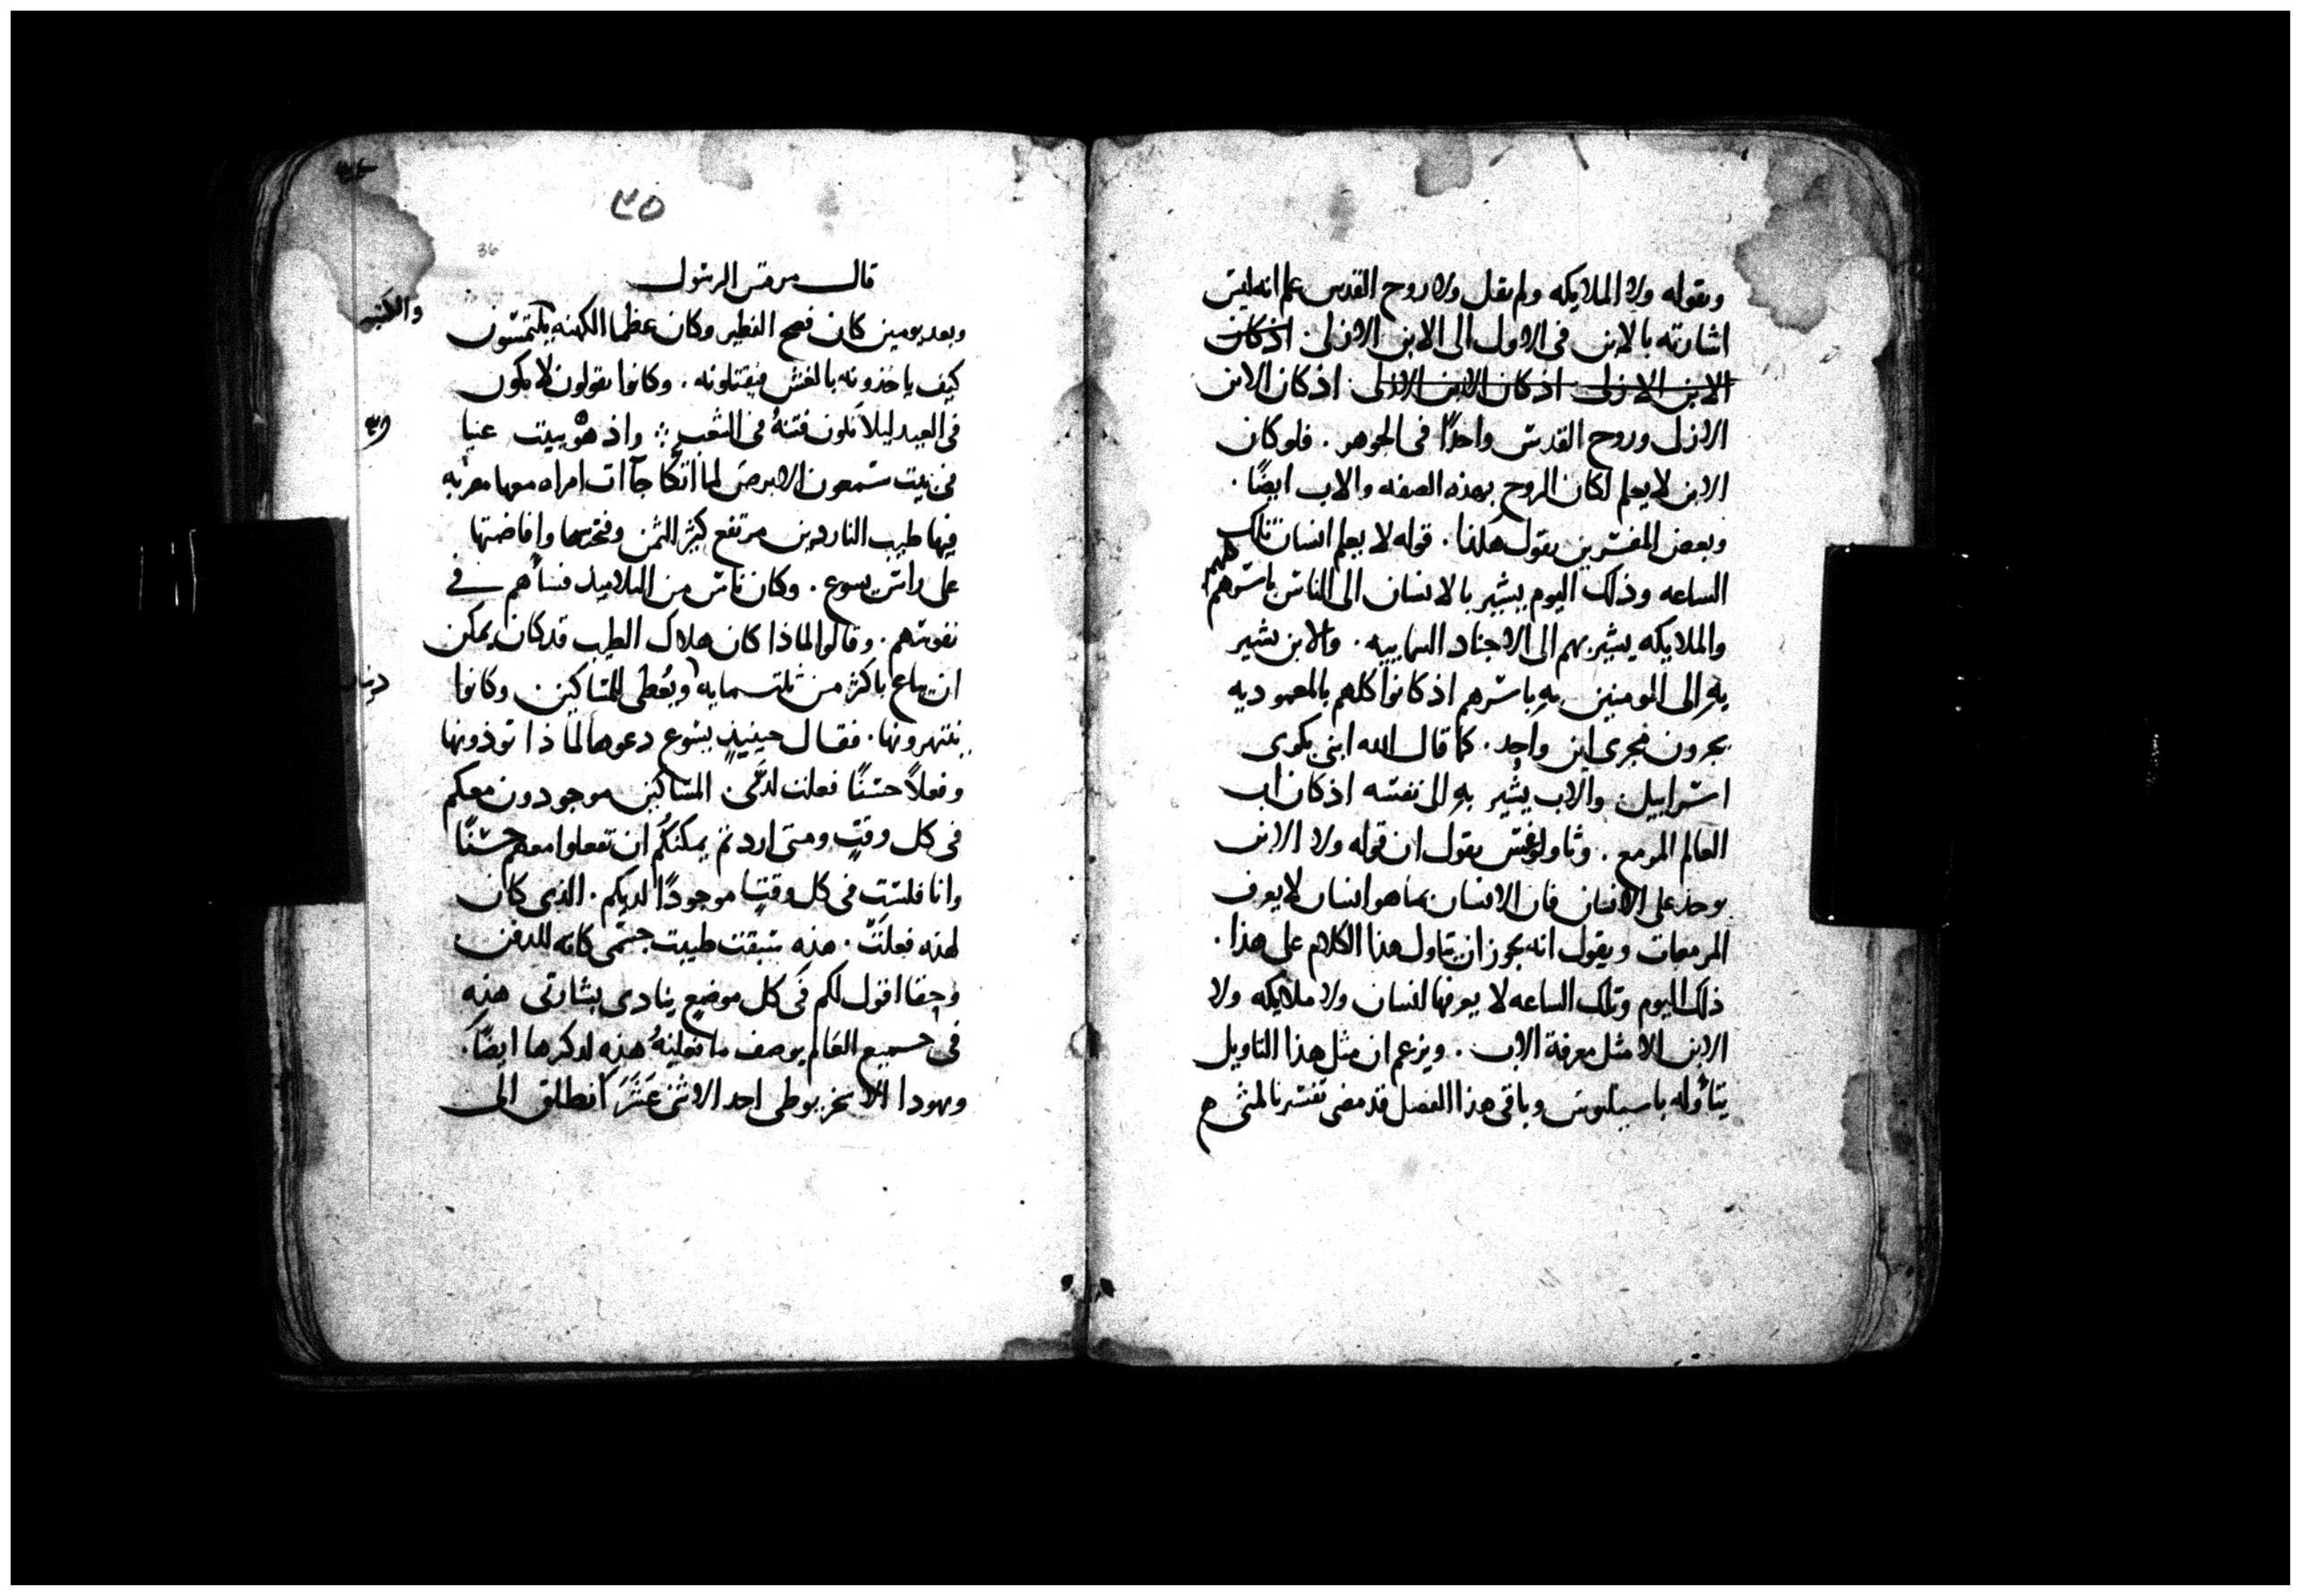 وبقوله ولا الملايكه ولم يقل ولا روح القدس علم انه ليس
اشارته بالابن فى الاول الى الابن الازلى اذ كان
الابن الازلى اذ كان الابن الازلى اذ كان الابن
الازلى وروح القدس واحدًا فى الجوهر . فلو كان
الابن لا يعلم لكان الروح بهذه الصفه والاب ايضًا .
وبعض المفسرين يقول هكذا . قوله لا يعلم انسان تلك
الساعه وذلك اليوم يشير بالانسان الى الناس باسرهم كلهم
والملايكه يشير بهم الى الاجناد السماييه . والابن يشير
به الى المومنين به باسرهم اذ كانوا كلهم بالمعموديه
يجرون مجرى ابن واحد . كما قال الله ابنى بكرى
اسراييل والاب يشير به الى نفسه اذ كان اب
العالم المزمع . وثاولوغس يقول ان قوله ولا الابن
يوخذ على الانسان فان الانسان بما هو انسان لا يعرف
المزمعات ويقول انه يجوز ان يتاول هذا الكلام على هذا .
ذلك اليوم وتلك الساعه لا يعرفها انسان ولا ملايكه ولا
الابن الا مثل معرفة الاب . ويزعم ان مثل هذا التاويل
يتأوله باسيليوس وباقى هذا الفصل قد مضى تفسيره لمتى
٣٥
36
قال مرقس الرسول
وبعد يومين كان فصح الفطير وكان عظما الكهنه يلتمسون
والكتبه
كيف ياخذونه بالغش فيقتلونه . وكانوا يقولون لا يكون
فى العيد ليلا تكون فتنهُ فى الشعب ⁘ واذ هو ببيت عنيا
فى بيت سمعون الابرص لما اتكا جآات امراه معها
فيها طيب الناردين مرتفع كثير الثمن وفتحتها وافاضتها
على راس يسوع . وكان ناس من التلاميذ فساهم فى
نفوسهم . وقالوا لماذا كان هلاك الطيب قد كان يمكن
ان يباع باكثر من ثلثمايه ويُعطى للمساكين وكانوا
دينار
ينتهرونها . فقال حينيذٍ يسوع دعوها لماذا توذونها
وفعلاً حسنًا فعلت لدىَّ المساكين موجودون معكم
فى كل وقتٍ ومتى اردتم يمكنكم ان تفعلوا معهم حسنًا
وانا فلستُ فى كل وقتٍ موجودًا لديكم . الذى كان
لهذه فعلتْ . هذه سبقت طيبت جسمى كانه للدفن
وحقا اقول لكم فى كل موضع ينادى بشارتى هذه
فى جميع العالم يوصف ما فعلتهُ هذه لذكرها ايضًا .
ويهودا الاسخريوطى احد الاثنى عَشَرَ انطلق الى